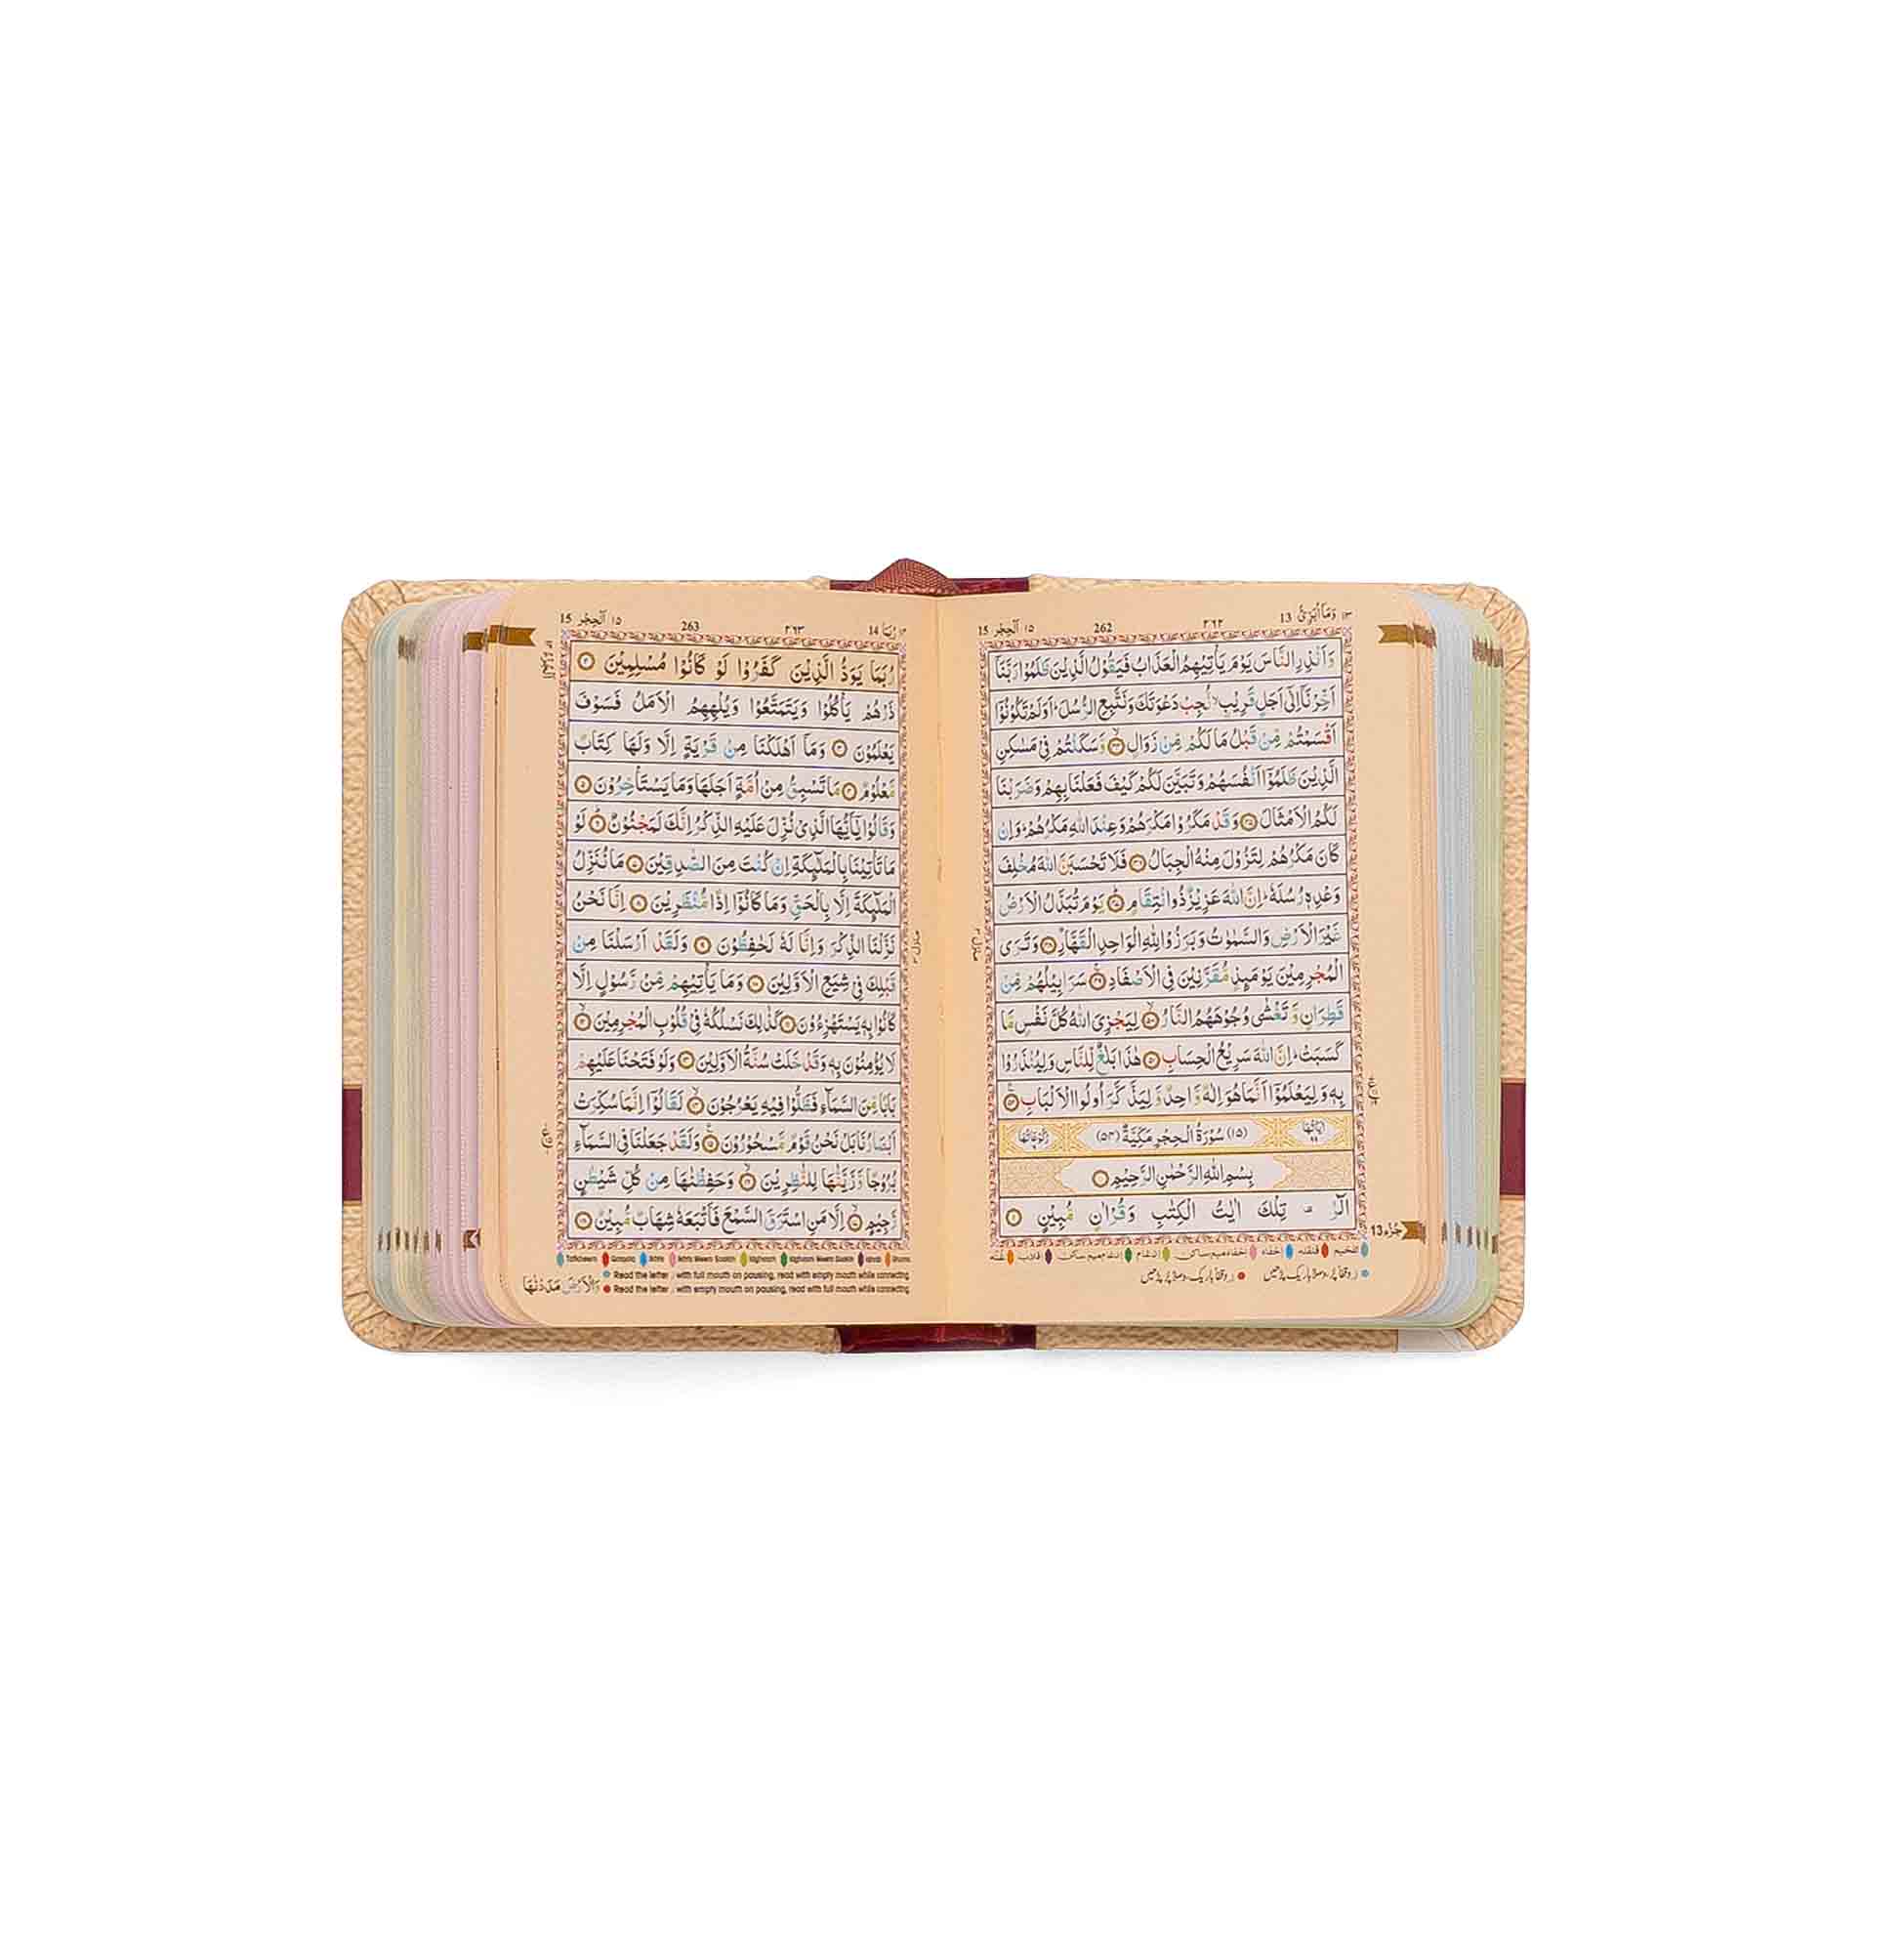 ١٣ وَمَآ اُبَرِّئُ 13 ٢٦٢ 262 ١٥ اَلْحِجْر 15
وَاَنْذِرِ النَّاسَ يَوْمَ يَاْتِيْهِمُ الْعَذَابُ فَيَقُوْلُ الَّذِيْنَ ظَلَمُوْا رَبَّنَآ
اَخِّرْنَآ اِلٰٓى اَجَلٍ قَرِيْبٍ ۙ نُّجِبْ دَعْوَتَكَ وَنَتَّبِعِ الرُّسُلَ ؕ اَوَلَمْ تَكُوْنُوْٓا
اَقْسَمْتُمْ مِّنْ قَبْلُ مَا لَكُمْ مِّنْ زَوَالٍ ۙ ﴿٤٤﴾ وَّسَكَنْتُمْ فِيْ مَسٰكِنِ
الَّذِيْنَ ظَلَمُوْٓا اَنْفُسَهُمْ وَتَبَيَّنَ لَكُمْ كَيْفَ فَعَلْنَا بِهِمْ وَضَرَبْنَا
لَكُمُ الْاَمْثَالَ ﴿٤٥﴾ وَقَدْ مَكَرُوْا مَكْرَهُمْ وَعِنْدَ اللّٰهِ مَكْرُهُمْ ؕ وَاِنْ
كَانَ مَكْرُهُمْ لِتَزُوْلَ مِنْهُ الْجِبَالُ ﴿٤٦﴾ فَلَا تَحْسَبَنَّ اللّٰهَ مُخْلِفَ
وَعْدِهٖ رُسُلَهٗ ؕ اِنَّ اللّٰهَ عَزِيْزٌ ذُو انْتِقَامٍ ؕ ﴿٤٧﴾ يَوْمَ تُبَدَّلُ الْاَرْضُ
غَيْرَ الْاَرْضِ وَالسَّمٰوٰتُ وَبَرَزُوْا لِلّٰهِ الْوَاحِدِ الْقَهَّارِ ﴿٤٨﴾ وَتَرَى
الْمُجْرِمِيْنَ يَوْمَئِذٍ مُّقَرَّنِيْنَ فِي الْاَصْفَادِ ۚ ﴿٤٩﴾ سَرَابِيْلُهُمْ مِّنْ
قَطِرَانٍ وَّتَغْشٰى وُجُوْهَهُمُ النَّارُ ۙ ﴿٥٠﴾ لِيَجْزِيَ اللّٰهُ كُلَّ نَفْسٍ مَّا
كَسَبَتْ ؕ اِنَّ اللّٰهَ سَرِيْعُ الْحِسَابِ ﴿٥١﴾ هٰذَا بَلٰغٌ لِّلنَّاسِ وَلِيُنْذَرُوْا
بِهٖ وَلِيَعْلَمُوْٓا اَنَّمَا هُوَ اِلٰهٌ وَّاحِدٌ وَّلِيَذَّكَّرَ اُولُوا الْاَلْبَابِ ﴿٥٢﴾
اٰيَاتُهَا ٩٩ (١٥) سُوْرَةُ الْحِجْرِ مَكِّيَّةٌ (٥٤) رُكُوْعَاتُهَا
بِسْمِ اللّٰهِ الرَّحْمٰنِ الرَّحِيْمِ
الٓرٰ ۫ تِلْكَ اٰيٰتُ الْكِتٰبِ وَقُرْاٰنٍ مُّبِيْنٍ ﴿١﴾
جُزء 13
تفخیم قلقلہ اخفاء اخفاء میم ساکن ادغام ادغام میم ساکن قلب غنّہ
ر وقفاً پُر، وصلاً باریک پڑھیں ر وقفاً باریک، وصلاً پُر پڑھیں
رُبَمَا 14 ٢٦٣ 263 ١٥ اَلْحِجْر 15
رُبَمَا يَوَدُّ الَّذِيْنَ كَفَرُوْا لَوْ كَانُوْا مُسْلِمِيْنَ ﴿٢﴾
ذَرْهُمْ يَاْكُلُوْا وَيَتَمَتَّعُوْا وَيُلْهِهِمُ الْاَمَلُ فَسَوْفَ
يَعْلَمُوْنَ ﴿٣﴾ وَمَآ اَهْلَكْنَا مِنْ قَرْيَةٍ اِلَّا وَلَهَا كِتَابٌ
مَّعْلُوْمٌ ﴿٤﴾ مَا تَسْبِقُ مِنْ اُمَّةٍ اَجَلَهَا وَمَا يَسْتَاْخِرُوْنَ ﴿٥﴾
وَقَالُوْا يٰٓاَيُّهَا الَّذِيْ نُزِّلَ عَلَيْهِ الذِّكْرُ اِنَّكَ لَمَجْنُوْنٌ ؕ ﴿٦﴾ لَوْ
مَا تَاْتِيْنَا بِالْمَلٰٓئِكَةِ اِنْ كُنْتَ مِنَ الصّٰدِقِيْنَ ﴿٧﴾ مَا نُنَزِّلُ
الْمَلٰٓئِكَةَ اِلَّا بِالْحَقِّ وَمَا كَانُوْٓا اِذًا مُّنْظَرِيْنَ ﴿٨﴾ اِنَّا نَحْنُ
نَزَّلْنَا الذِّكْرَ وَاِنَّا لَهٗ لَحٰفِظُوْنَ ﴿٩﴾ وَلَقَدْ اَرْسَلْنَا مِنْ
قَبْلِكَ فِيْ شِيَعِ الْاَوَّلِيْنَ ﴿١٠﴾ وَمَا يَاْتِيْهِمْ مِّنْ رَّسُوْلٍ اِلَّا
كَانُوْا بِهٖ يَسْتَهْزِءُوْنَ ﴿١١﴾ كَذٰلِكَ نَسْلُكُهٗ فِيْ قُلُوْبِ الْمُجْرِمِيْنَ ۙ ﴿١٢﴾
لَا يُؤْمِنُوْنَ بِهٖ وَقَدْ خَلَتْ سُنَّةُ الْاَوَّلِيْنَ ﴿١٣﴾ وَلَوْ فَتَحْنَا عَلَيْهِمْ
بَابًا مِّنَ السَّمَآءِ فَظَلُّوْا فِيْهِ يَعْرُجُوْنَ ۙ ﴿١٤﴾ لَقَالُوْٓا اِنَّمَا سُكِّرَتْ
اَبْصَارُنَا بَلْ نَحْنُ قَوْمٌ مَّسْحُوْرُوْنَ ﴿١٥﴾ وَلَقَدْ جَعَلْنَا فِي السَّمَآءِ
بُرُوْجًا وَّزَيَّنّٰهَا لِلنّٰظِرِيْنَ ۙ ﴿١٦﴾ وَحَفِظْنٰهَا مِنْ كُلِّ شَيْطٰنٍ
رَّجِيْمٍ ۙ ﴿١٧﴾ اِلَّا مَنِ اسْتَرَقَ السَّمْعَ فَاَتْبَعَهٗ شِهَابٌ مُّبِيْنٌ ﴿١٨﴾
Read the letter ر with full mouth on pausing, read with empty mouth while connecting
Read the letter ر with empty mouth on pausing, read with full mouth while connecting
وَالْاَرْضَ مَدَدْنٰهَا